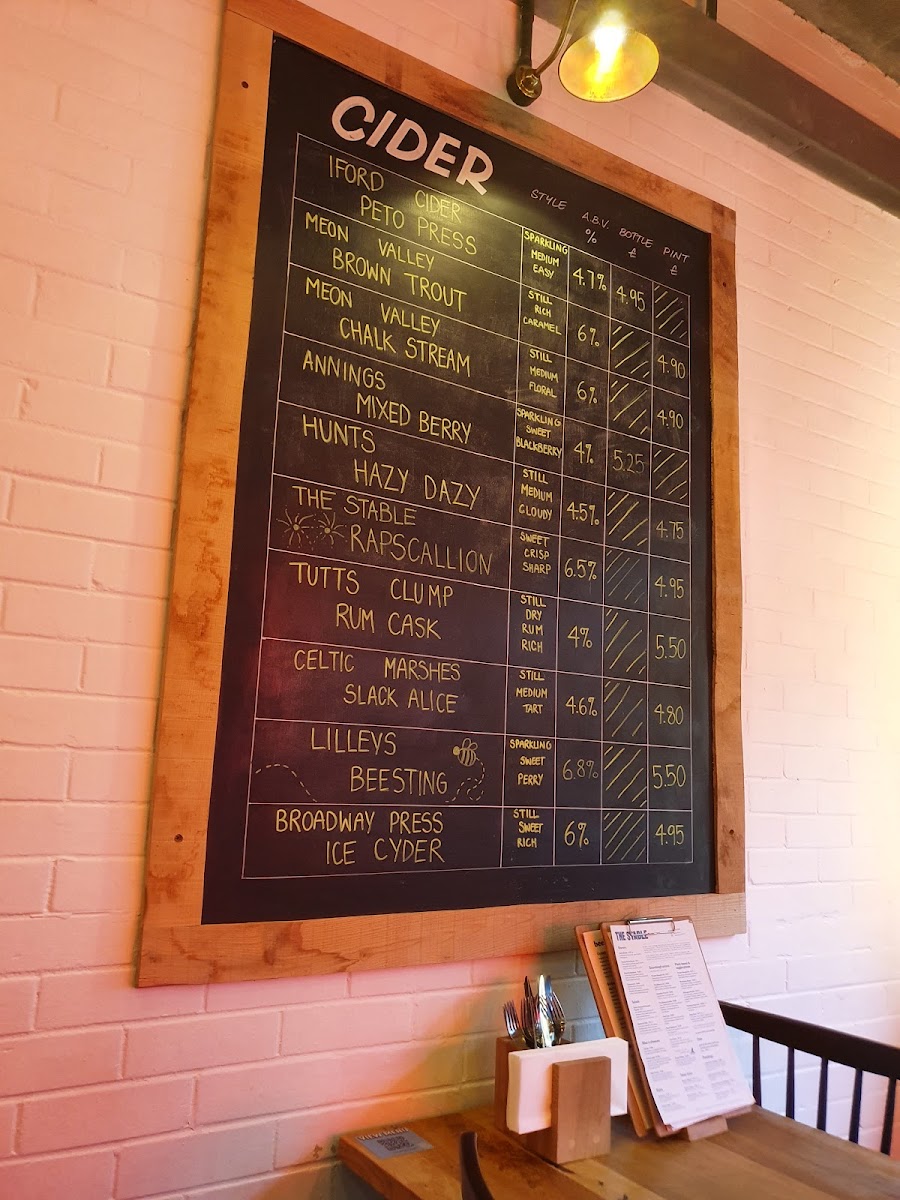 CIDER
STYLE A.B.V. % BOTTLE £ PINT £
IFORD CIDER
PETO PRESS
SPARKLING
MEDIUM
EASY
4.7% 4.95
MEON VALLEY
BROWN TROUT
STILL
RICH
CARAMEL
6% 4.90
MEON VALLEY
CHALK STREAM
STILL
MEDIUM
FLORAL
6% 4.90
ANNINGS
MIXED BERRY
SPARKLING
SWEET
BLACKBERRY
4% 5.25
HUNTS
HAZY DAZY
STILL
MEDIUM
CLOUDY
4.5% 4.75
THE STABLE
RAPSCALLION
SWEET
CRISP
SHARP
6.5% 4.95
TUTTS CLUMP
RUM CASK
STILL
DRY
RUM
RICH
4% 5.50
CELTIC MARSHES
SLACK ALICE
STILL
MEDIUM
TART
4.6% 4.80
LILLEYS
BEESTING
SPARKLING
SWEET
PERRY
6.8% 5.50
BROADWAY PRESS
ICE CYDER
STILL
SWEET
RICH
6% 4.95
THE STABLE
VIEW MENU